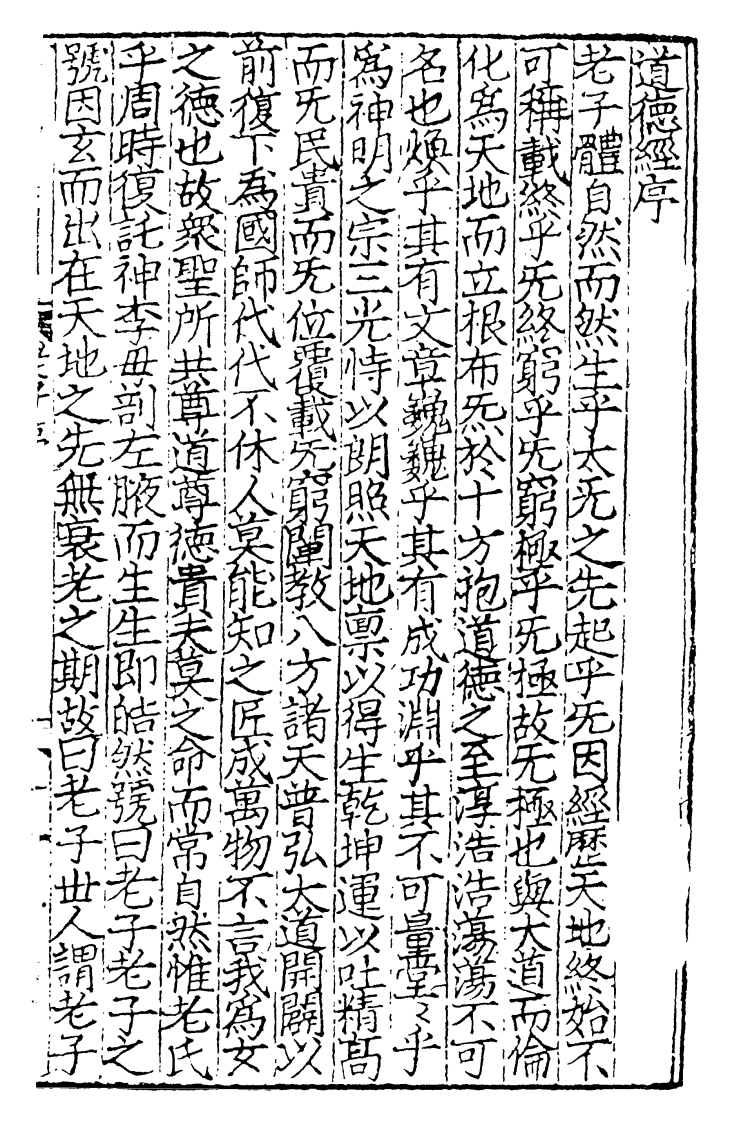 道德經序
老子體自然而然生乎太旡之先起乎旡因經歷天地終始不
可稱載終乎旡終窮乎旡窮極乎旡極故无極也與大道而倫
化爲天地而立根布炁於十方抱道德之至淳浩浩蕩蕩不可
名也煥乎其有文章巍巍乎其有成功淵乎其不可量堂〻乎
爲神明之宗三光恃以朗照天地禀以得生乾坤運以吐精高
而旡民貴而旡位覆載旡窮闡教八方諸天普弘大道開闢以
前復下為國師代代不休人莫能知之匠成萬物不言我爲女
之德也故衆聖所共尊道尊德貴夫莫之命而常自然惟老氏
乎周時復託神李母剖左腋而生生即皓然號曰老子老子之
號因玄而出在天地之先無衰老之期故曰老子丗人謂老子